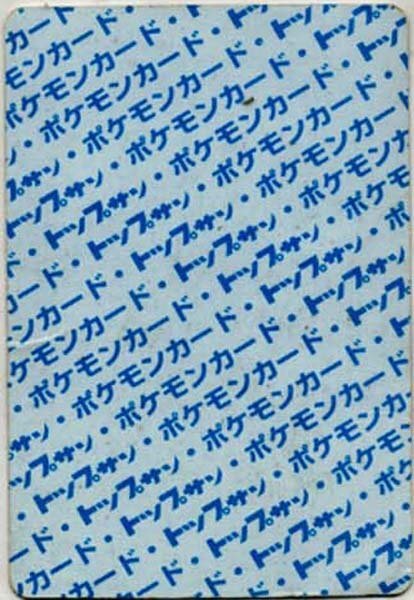 カード・
モンカード・トッ
ポケモンカード・トップ
・ポケモンカード・トッ
ン・ポケモンカード・
ップサン・ポケモンカード・
・トップサン・ポケモンカ
ド・トップサン・ポケモ
カード・トップサン・ポケ
ンカード・トップサン・
ケモンカード・トップサン
・ポケモンカード・トップ
ン・ポケモンカード・ト
プサン・ポケモンカード・
トップサン・ポケモンカー
・トップサン・ポケモン
ード・トップサン・ポケ
ンカード・トップサン・
カード・トップサン